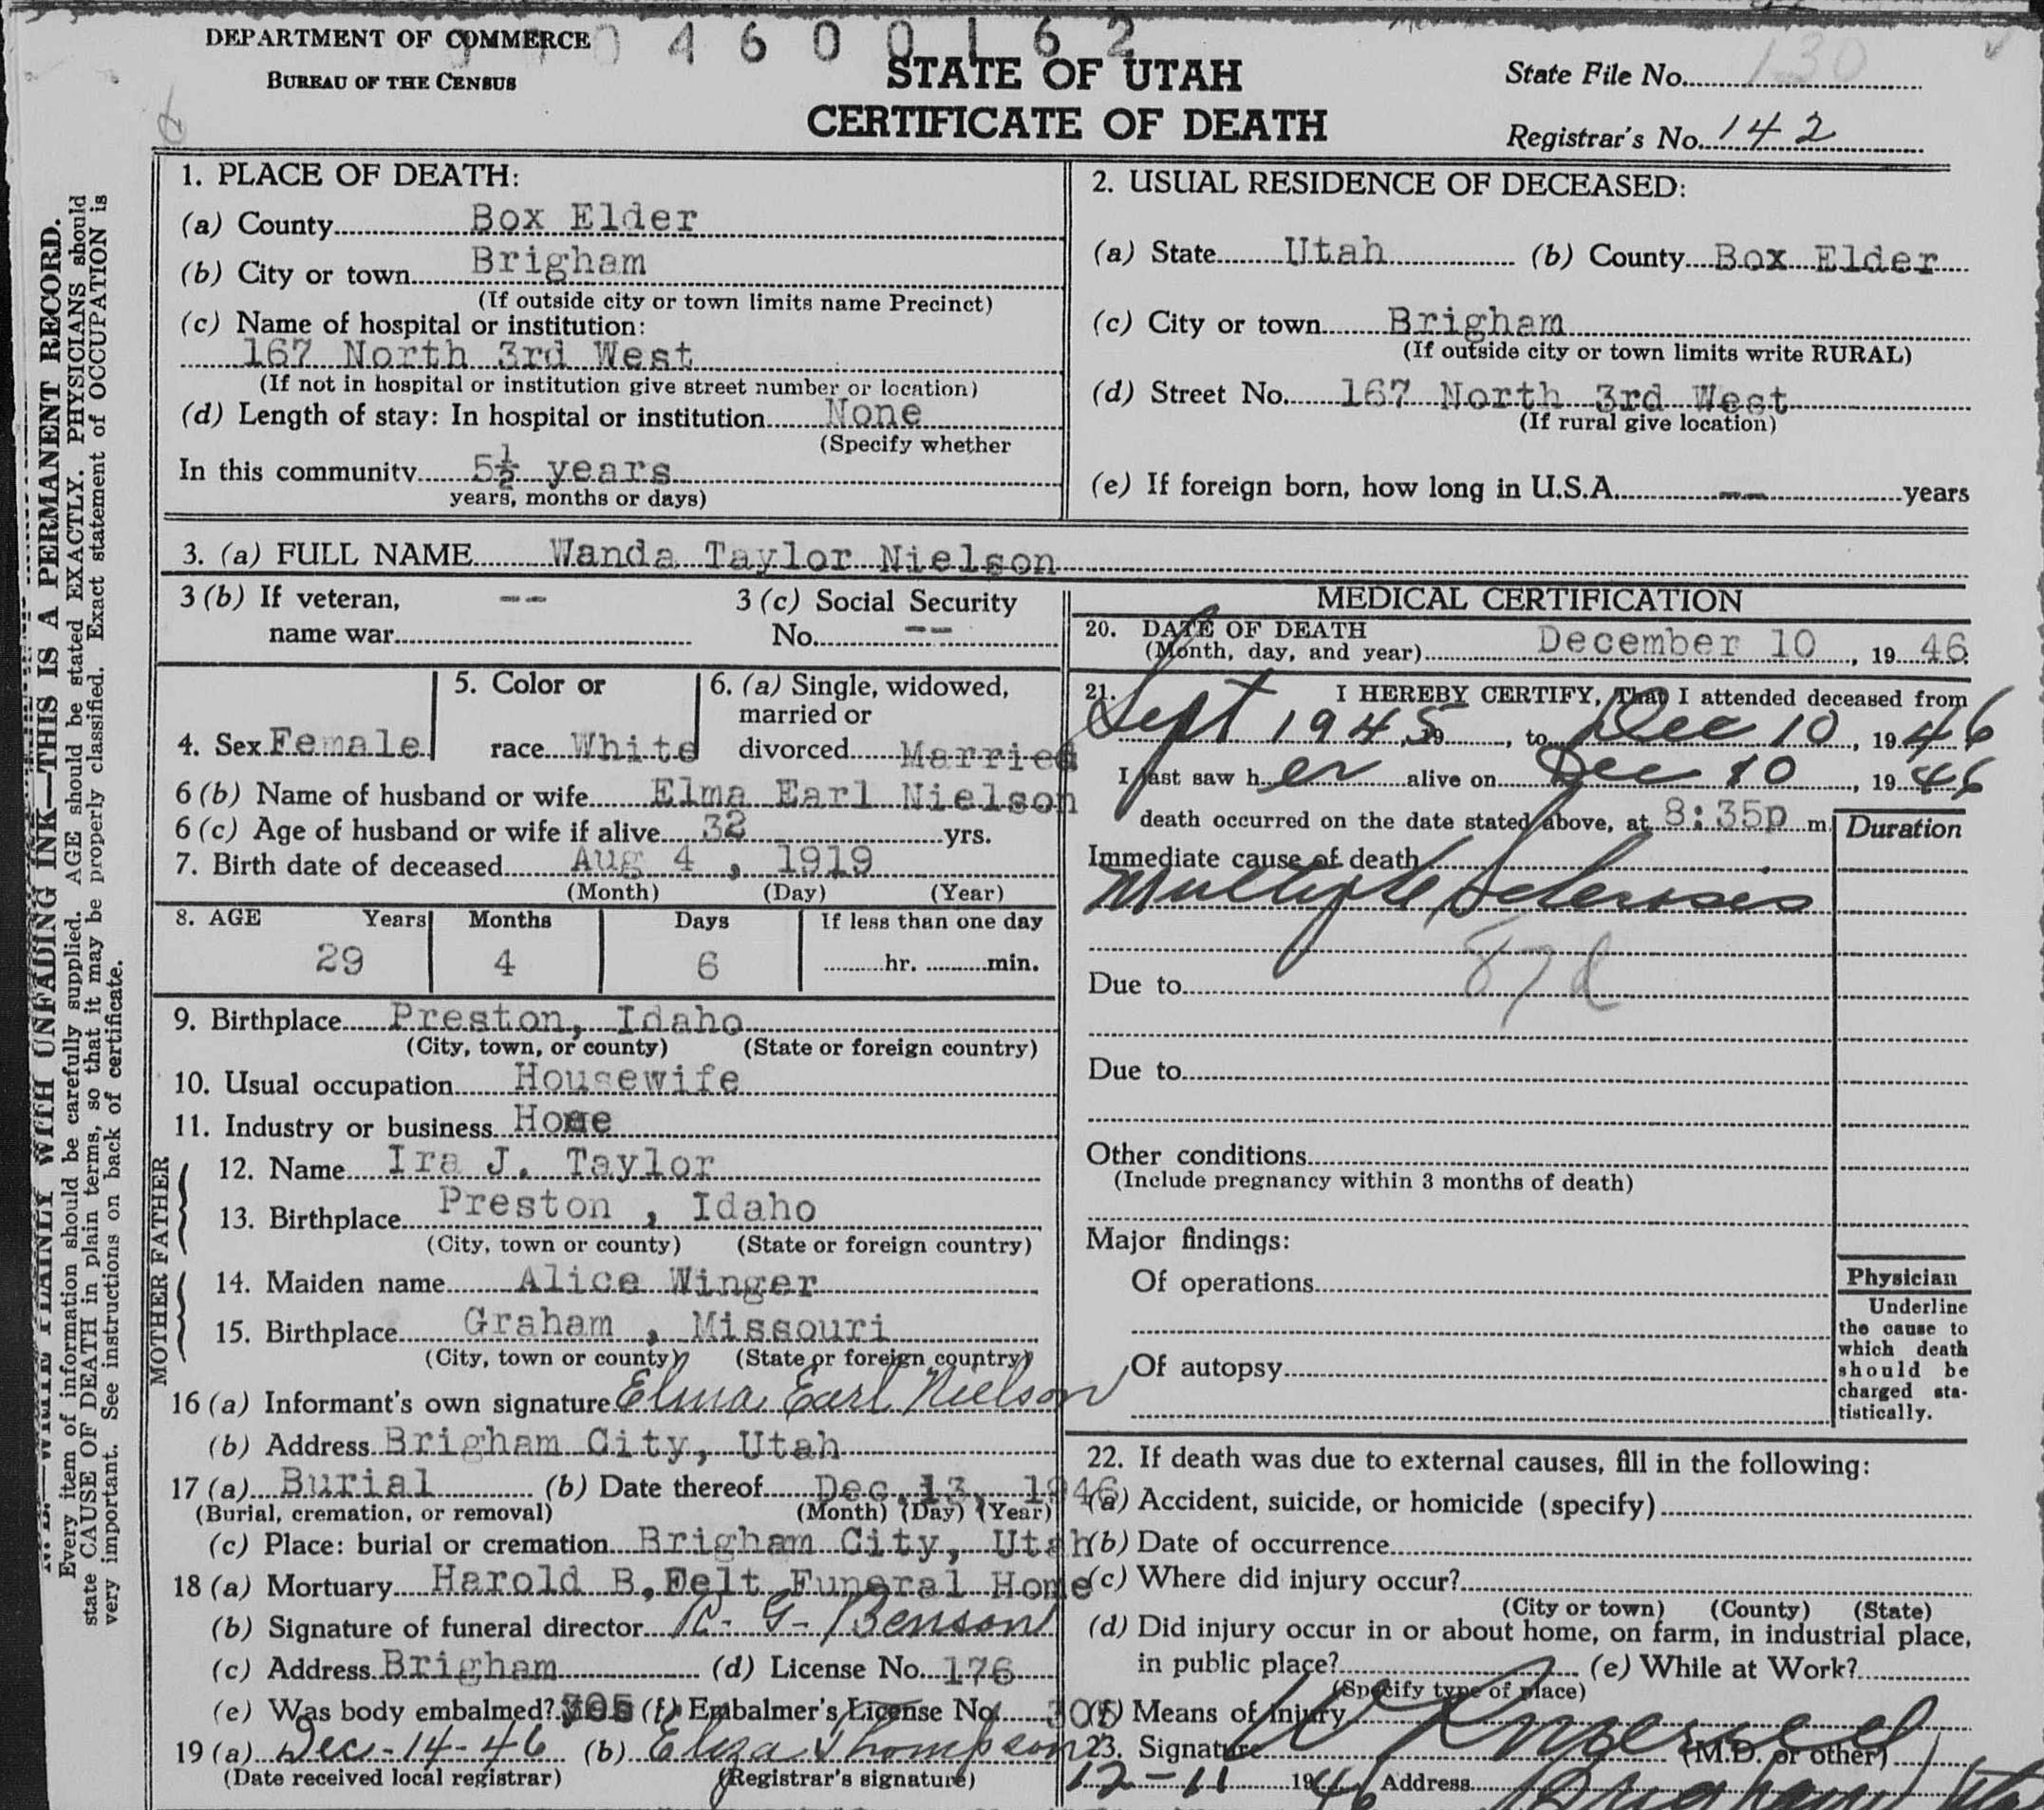 DEPARTMENT OF COMMERCE
BUREAU OF THE CENSUS
4600162
STATE OF UTAH
CERTIFICATE OF DEATH
State File No. 130
Registrar's No. 142
N. B.—WRITE PLAINLY WITH UNFADING INK—THIS IS A PERMANENT RECORD.
Every item of information should be carefully supplied. AGE should be stated EXACTLY. PHYSICIANS should
state CAUSE OF DEATH in plain terms, so that it may be properly classified. Exact statement of OCCUPATION is
very important. See instructions on back of certificate.
1. PLACE OF DEATH:
(a) County Box Elder
(b) City or town Brigham
(If outside city or town limits name Precinct)
(c) Name of hospital or institution:
167 North 3rd West
(If not in hospital or institution give street number or location)
(d) Length of stay: In hospital or institution None
(Specify whether
In this community 5½ years
years, months or days)
2. USUAL RESIDENCE OF DECEASED:
(a) State Utah (b) County Box Elder
(c) City or town Brigham
(If outside city or town limits write RURAL)
(d) Street No. 167 North 3rd West
(If rural give location)
(e) If foreign born, how long in U.S.A. -- years
3. (a) FULL NAME Wanda Taylor Nielson
3 (b) If veteran, --
name war
3 (c) Social Security
No. --
4. Sex Female
5. Color or
race White
6. (a) Single, widowed,
married or
divorced Married
6 (b) Name of husband or wife Elma Earl Nielson
6 (c) Age of husband or wife if alive 32 yrs.
7. Birth date of deceased Aug 4 , 1919
(Month) (Day) (Year)
8. AGE Years Months Days If less than one day
29 4 6 hr. min.
9. Birthplace Preston, Idaho
(City, town, or county) (State or foreign country)
10. Usual occupation Housewife
11. Industry or business Home
FATHER
12. Name Ira J. Taylor
13. Birthplace Preston , Idaho
(City, town or county) (State or foreign country)
MOTHER
14. Maiden name Alice Winger
15. Birthplace Graham , Missouri
(City, town or county) (State or foreign country)
16 (a) Informant's own signature Elma Earl Nielson
(b) Address Brigham City, Utah
17 (a) Burial (b) Date thereof Dec. 13, 1946
(Burial, cremation, or removal) (Month) (Day) (Year)
(c) Place: burial or cremation Brigham City, Utah
18 (a) Mortuary Harold B. Felt Funeral Home
(b) Signature of funeral director R. G. Benson
(c) Address Brigham (d) License No. 176
(e) Was body embalmed? (f) Embalmer's License No. 305
19 (a) Dec-14-46 (b) Eliza Thompson
(Date received local registrar) (Registrar's signature)
MEDICAL CERTIFICATION
20. DATE OF DEATH
(Month, day, and year) December 10 , 19 46
21. I HEREBY CERTIFY, That I attended deceased from
Sept 1945, 19 , to Dec 10 , 19 46
I last saw h er alive on Dec 10 , 19 46
death occurred on the date stated above, at 8:35p m
Duration
Immediate cause of death
Multiple Sclerosis
87d
Due to
Due to
Other conditions
(Include pregnancy within 3 months of death)
Major findings:
Of operations
Of autopsy
Physician
Underline
the cause to
which death
should be
charged sta-
tistically.
22. If death was due to external causes, fill in the following:
(a) Accident, suicide, or homicide (specify)
(b) Date of occurrence
(c) Where did injury occur?
(City or town) (County) (State)
(d) Did injury occur in or about home, on farm, in industrial place,
in public place? (e) While at Work?
(Specify type of place)
(f) Means of Injury
23. Signature (M.D. or other)
12-11 1946 Address Brigham